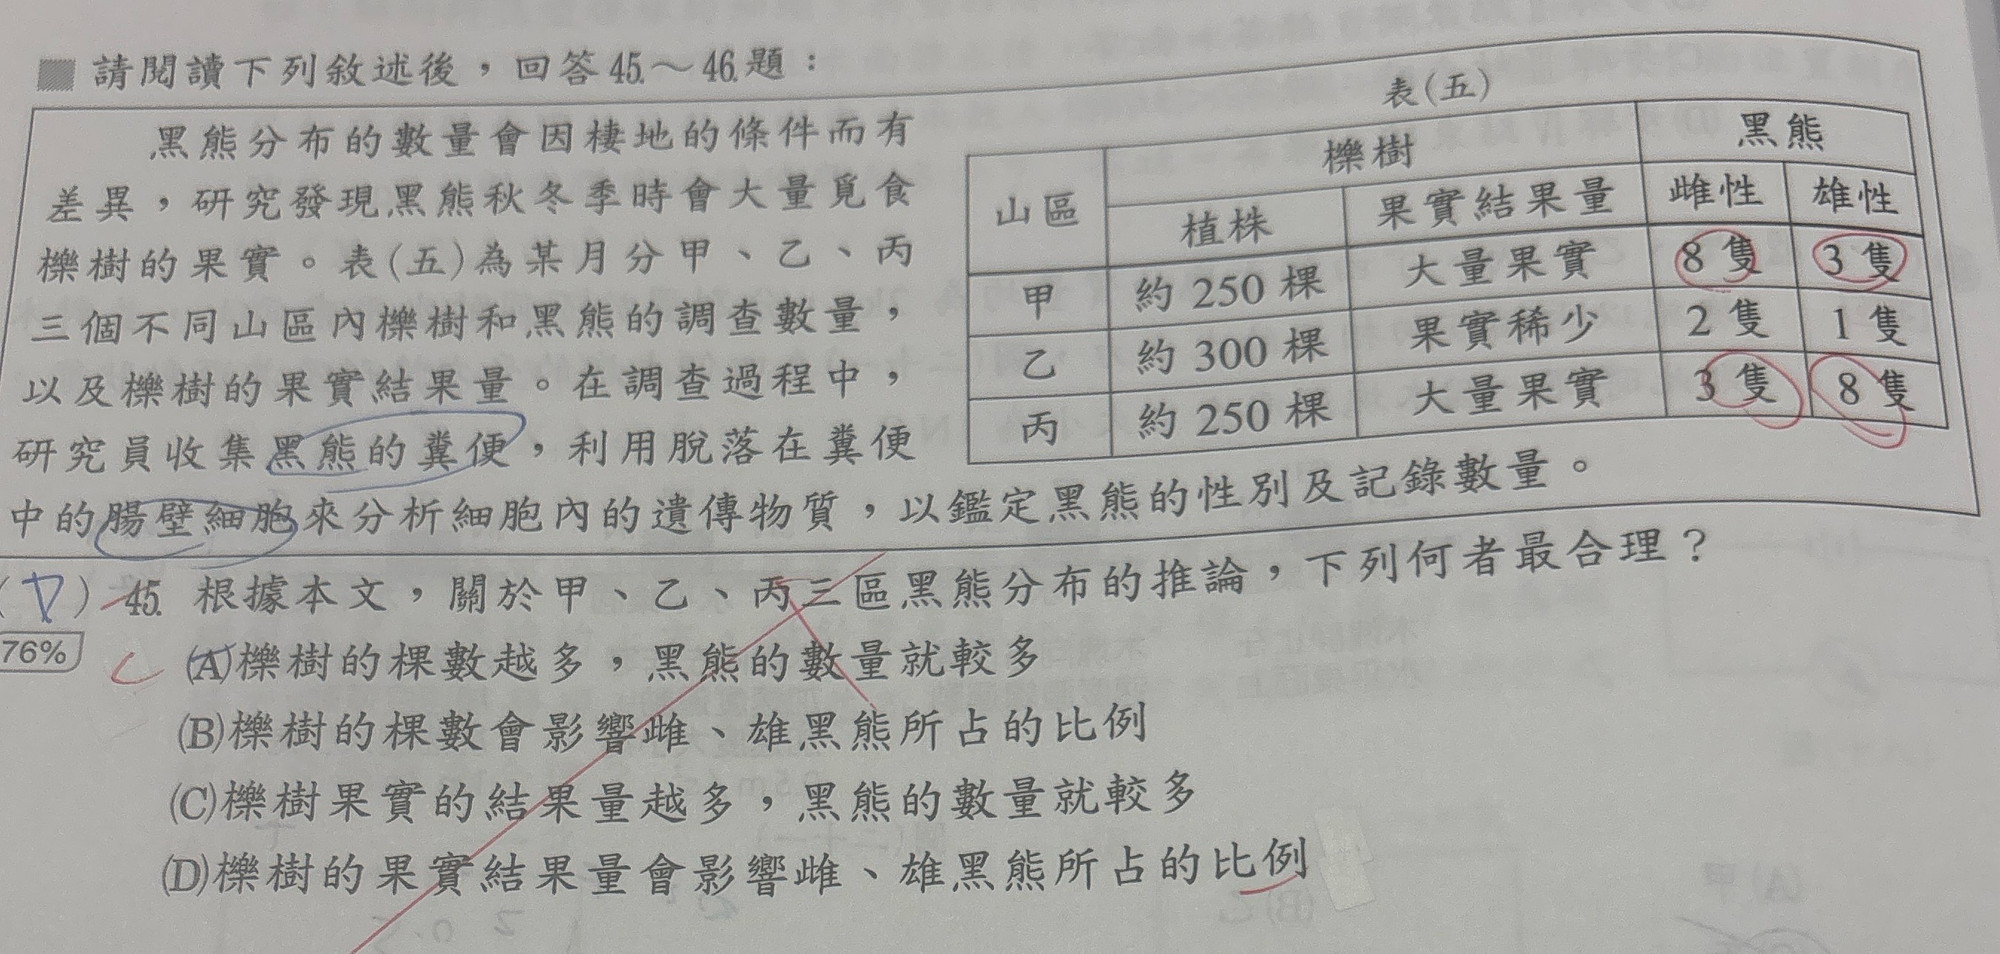 請閱讀下列敘述後，回答45.～46.題：
黑熊分布的數量會因棲地的條件而有
差異，研究發現黑熊秋冬季時會大量覓食
櫟樹的果實。表(五)為某月分甲、乙、丙
三個不同山區內櫟樹和黑熊的調查數量，
以及櫟樹的果實結果量。在調查過程中，
研究員收集黑熊的糞便，利用脫落在糞便
中的腸壁細胞來分析細胞內的遺傳物質，以鑑定黑熊的性別及記錄數量。
表(五)
山區 櫟樹 黑熊
植株 果實結果量 雌性 雄性
甲 約 250 棵 大量果實 8 隻 3 隻
乙 約 300 棵 果實稀少 2 隻 1 隻
丙 約 250 棵 大量果實 3 隻 8 隻
( D ) 45. 根據本文，關於甲、乙、丙三區黑熊分布的推論，下列何者最合理？
76% C (A)櫟樹的棵數越多，黑熊的數量就較多
(B)櫟樹的棵數會影響雌、雄黑熊所占的比例
(C)櫟樹果實的結果量越多，黑熊的數量就較多
(D)櫟樹的果實結果量會影響雌、雄黑熊所占的比例